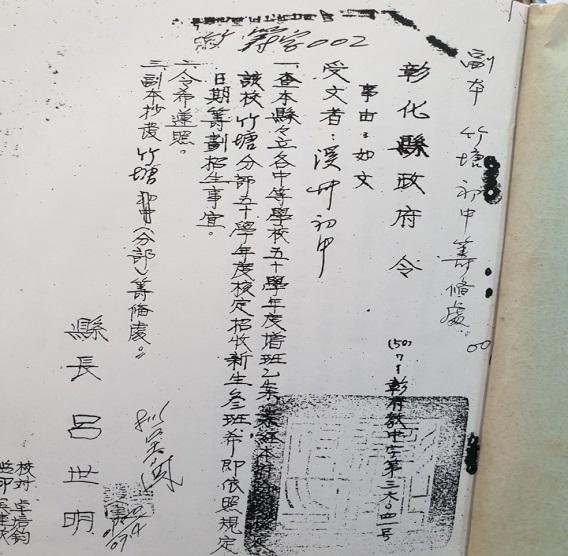 副本 竹塘初中籌備處
彰化縣政府令
(50)7 1 彰府教中字第三六〇四一號
事由：如文
受文者：溪州初中
一、查本縣縣立各中等學校五十學年度增班乙案業經本府
該校竹塘分部五十學年度核定招收新生叁班希即依照規定
日期籌劃招生事宜。
二、令希遵照。
三、副本抄發竹塘初中(分部)籌備處。
縣長 呂世明
002
校對
監印